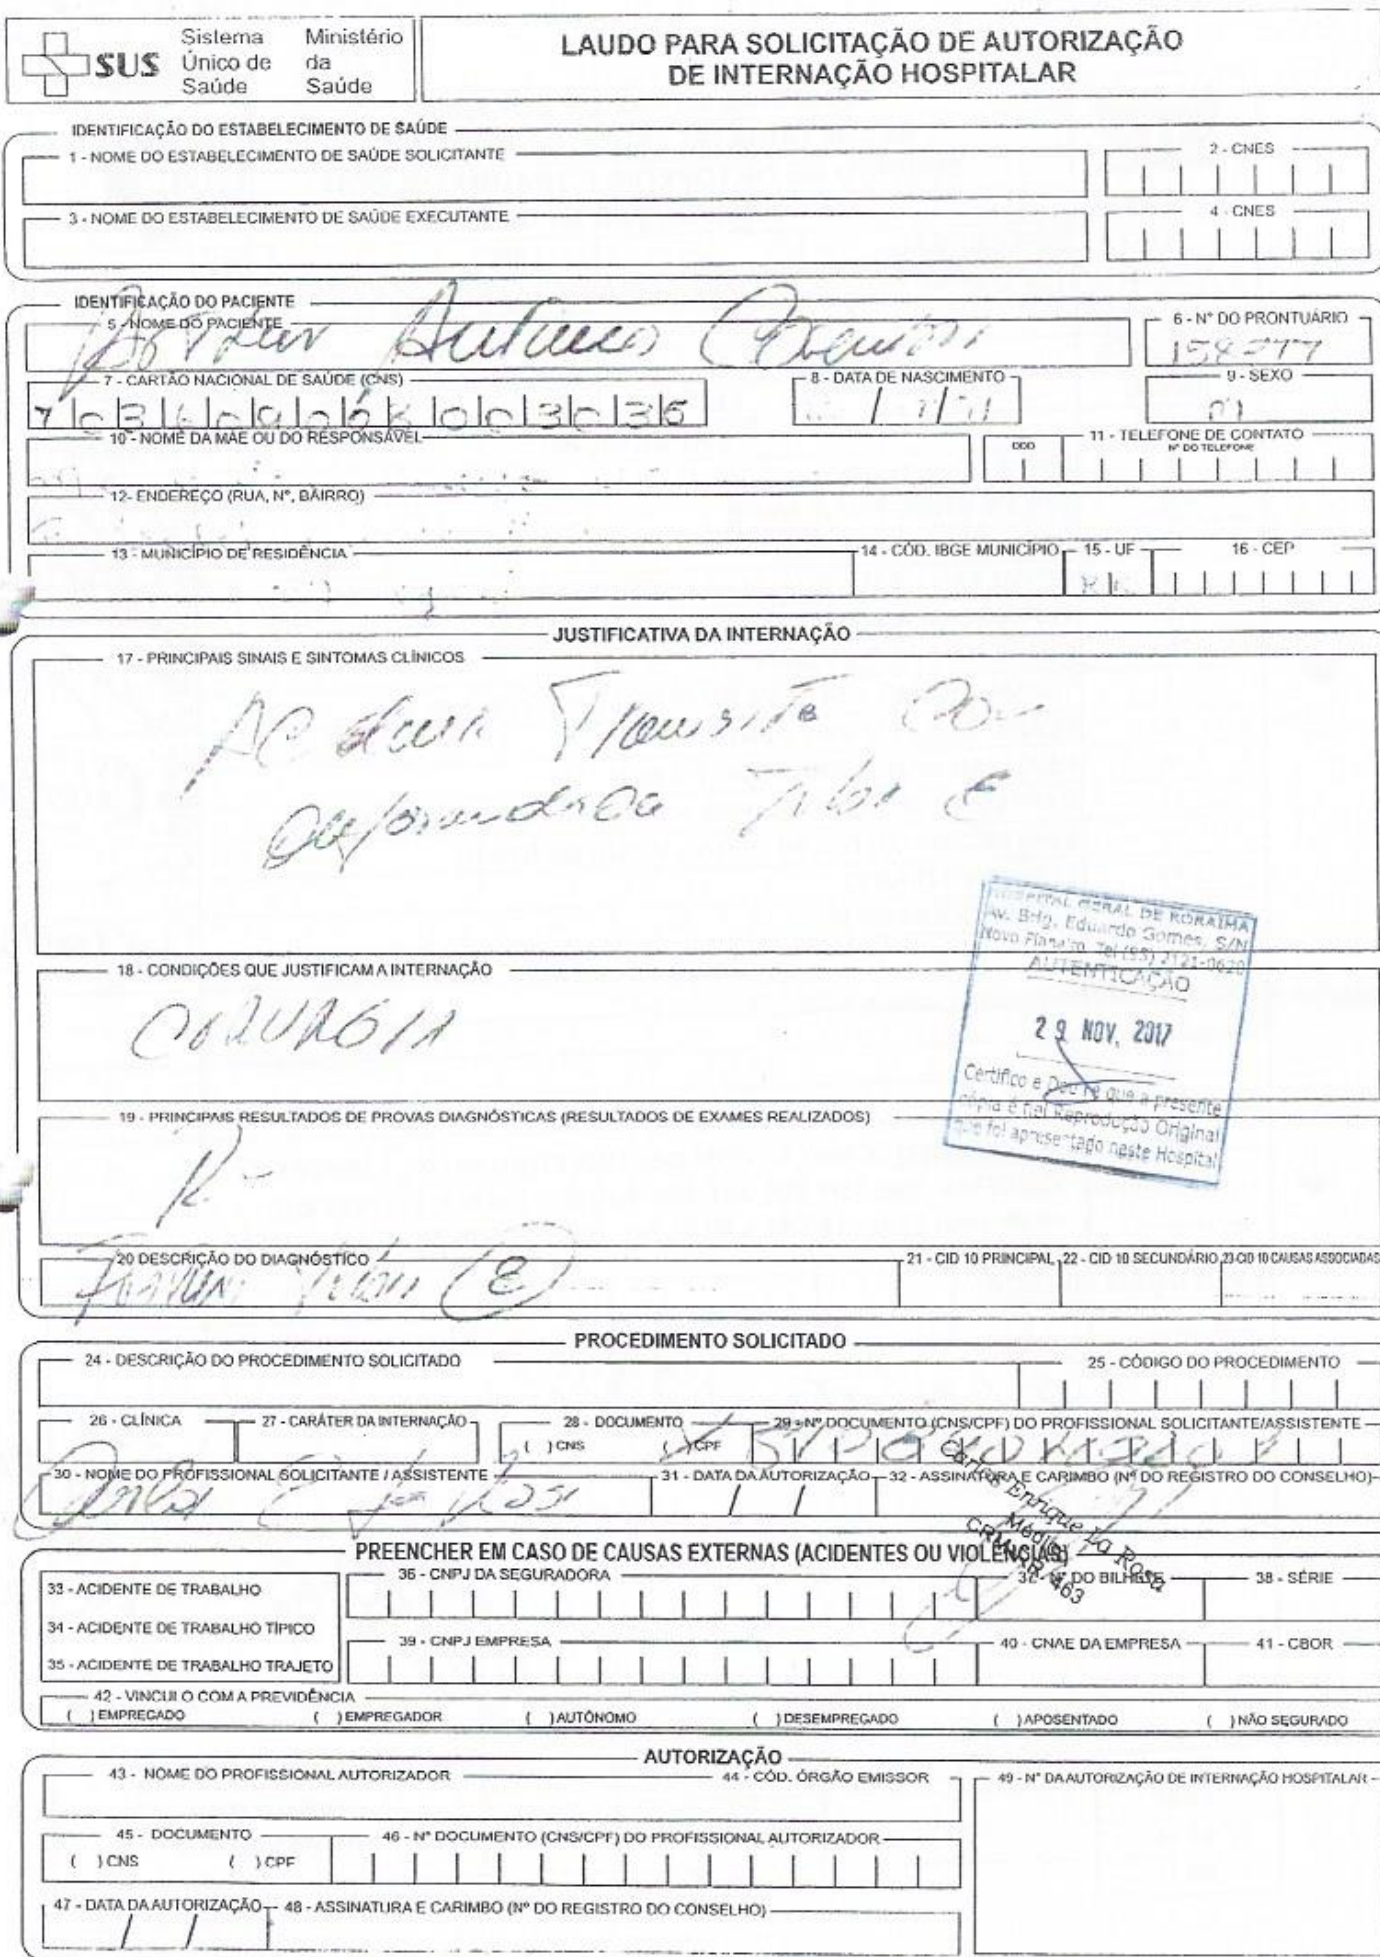 SUS
Sistema Único de Saúde
Ministério da Saúde
LAUDO PARA SOLICITAÇÃO DE AUTORIZAÇÃO
DE INTERNAÇÃO HOSPITALAR
IDENTIFICAÇÃO DO ESTABELECIMENTO DE SAÚDE
1 - NOME DO ESTABELECIMENTO DE SAÚDE SOLICITANTE
2 - CNES
3 - NOME DO ESTABELECIMENTO DE SAÚDE EXECUTANTE
4 - CNES
IDENTIFICAÇÃO DO PACIENTE
5 - NOME DO PACIENTE
6 - Nº DO PRONTUÁRIO
7 - CARTÃO NACIONAL DE SAÚDE (CNS)
8 - DATA DE NASCIMENTO
9 - SEXO
10 - NOME DA MÃE OU DO RESPONSÁVEL
11 - TELEFONE DE CONTATO
DDD
Nº DO TELEFONE
12- ENDEREÇO (RUA, Nº, BAIRRO)
13 - MUNICÍPIO DE RESIDÊNCIA
14 - CÓD. IBGE MUNICÍPIO
15 - UF
16 - CEP
RR
JUSTIFICATIVA DA INTERNAÇÃO
17 - PRINCIPAIS SINAIS E SINTOMAS CLÍNICOS
HOSPITAL GERAL DE RORAIMA
Av. Brig. Eduardo Gomes, S/N
Novo Planalto, Tel (95) 2121-0620
AUTENTICAÇÃO
29 NOV. 2017
Certifico e Dou Fé que a presente
cópia é fiel Reprodução Original
que foi apresentado neste Hospital
18 - CONDIÇÕES QUE JUSTIFICAM A INTERNAÇÃO
CIRURGIA
19 - PRINCIPAIS RESULTADOS DE PROVAS DIAGNÓSTICAS (RESULTADOS DE EXAMES REALIZADOS)
20 DESCRIÇÃO DO DIAGNÓSTICO
21 - CID 10 PRINCIPAL
22 - CID 10 SECUNDÁRIO
23-CID 10 CAUSAS ASSOCIADAS
PROCEDIMENTO SOLICITADO
24 - DESCRIÇÃO DO PROCEDIMENTO SOLICITADO
25 - CÓDIGO DO PROCEDIMENTO
26 - CLÍNICA
27 - CARÁTER DA INTERNAÇÃO
28 - DOCUMENTO
( ) CNS ( ) CPF
29 - Nº DOCUMENTO (CNS/CPF) DO PROFISSIONAL SOLICITANTE/ASSISTENTE
30 - NOME DO PROFISSIONAL SOLICITANTE / ASSISTENTE
31 - DATA DA AUTORIZAÇÃO
32 - ASSINATURA E CARIMBO (Nº DO REGISTRO DO CONSELHO)
Carlos Enrique La Rosa
Médico
CRM-RR 463
PREENCHER EM CASO DE CAUSAS EXTERNAS (ACIDENTES OU VIOLÊNCIAS)
33 - ACIDENTE DE TRABALHO
34 - ACIDENTE DE TRABALHO TÍPICO
35 - ACIDENTE DE TRABALHO TRAJETO
36 - CNPJ DA SEGURADORA
37 - Nº DO BILHETE
38 - SÉRIE
39 - CNPJ EMPRESA
40 - CNAE DA EMPRESA
41 - CBOR
42 - VINCULO COM A PREVIDÊNCIA
( ) EMPREGADO ( ) EMPREGADOR ( ) AUTÔNOMO ( ) DESEMPREGADO ( ) APOSENTADO ( ) NÃO SEGURADO
AUTORIZAÇÃO
43 - NOME DO PROFISSIONAL AUTORIZADOR
44 - CÓD. ÓRGÃO EMISSOR
49 - Nº DA AUTORIZAÇÃO DE INTERNAÇÃO HOSPITALAR
45 - DOCUMENTO
( ) CNS ( ) CPF
46 - Nº DOCUMENTO (CNS/CPF) DO PROFISSIONAL AUTORIZADOR
47 - DATA DA AUTORIZAÇÃO
48 - ASSINATURA E CARIMBO (Nº DO REGISTRO DO CONSELHO)